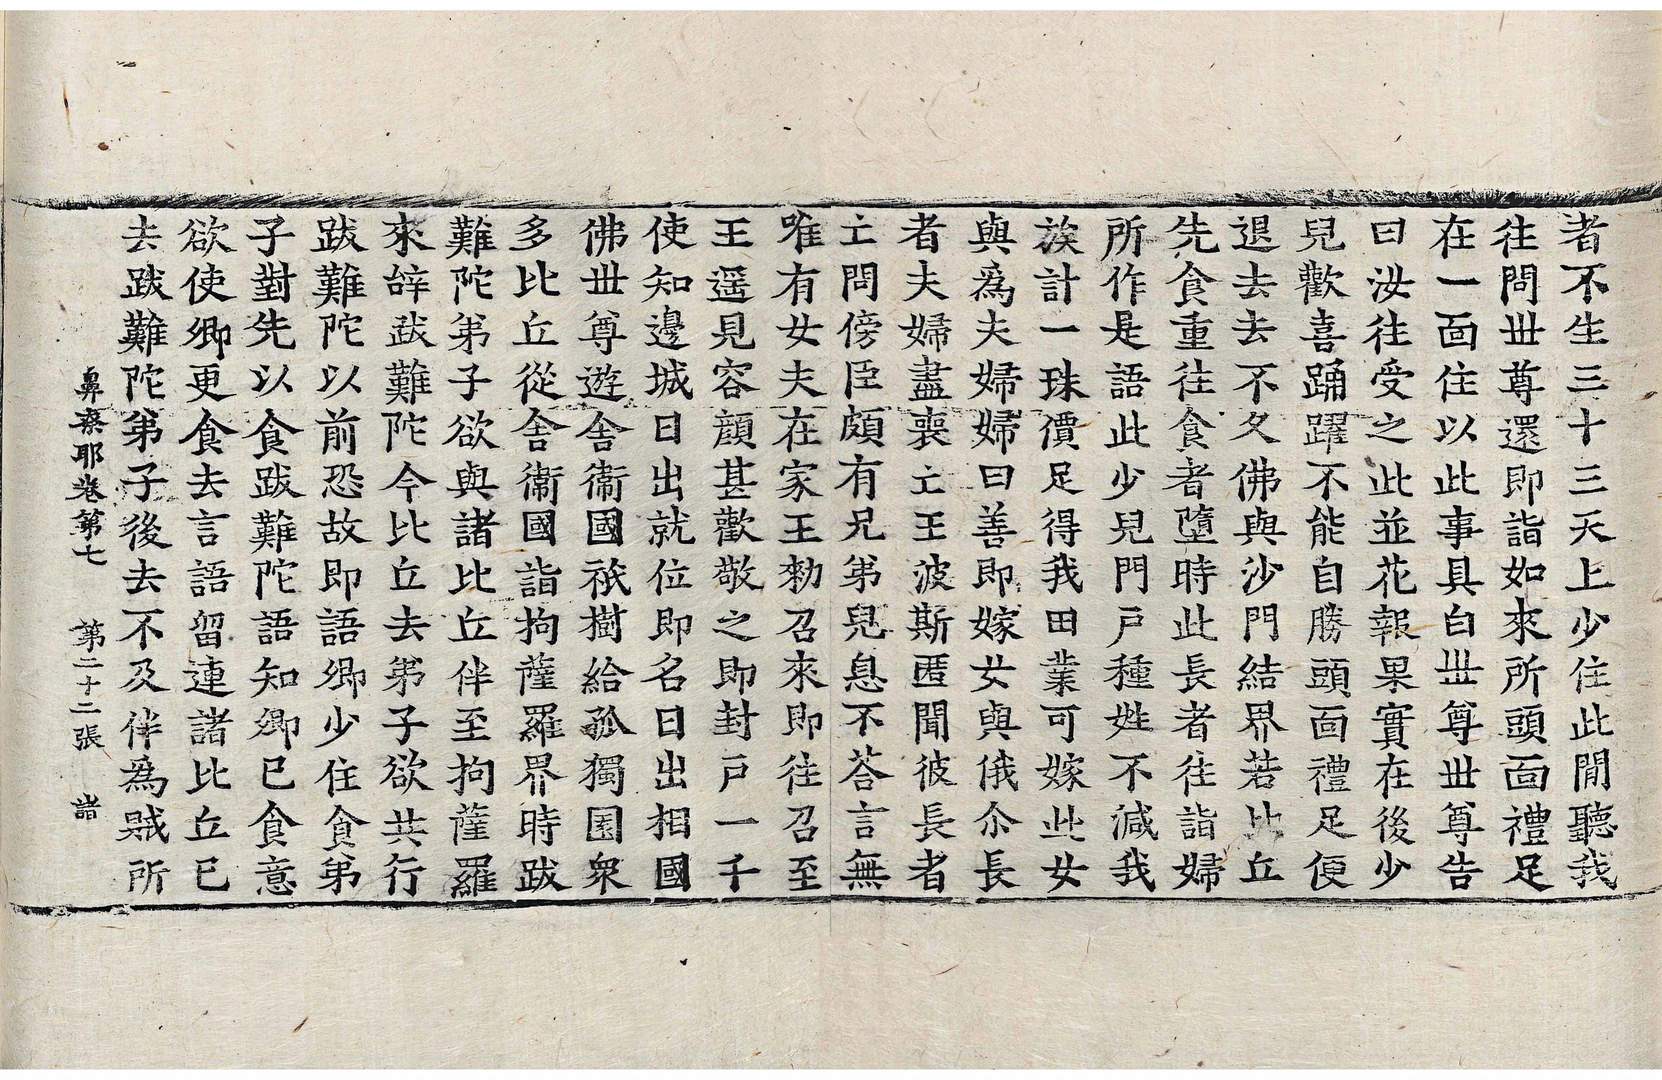 者不生三十三天上少住此閒聽我
往問丗尊還即詣如來所頭面禮足
在一面住以此事具白丗尊丗尊告
曰汝往受之此並花報果實在後少
兒歡喜踊躍不能自勝頭面禮足便
退去去不久佛與沙門結界若比丘
先食重往食者墮時此長者往詣婦
所作是語此少兒門戶種姓不減我
族計一珠價足得我田業可嫁此女
與爲夫婦婦曰善即嫁女與俄尒長
者夫婦盡喪亡王波斯匿聞彼長者
亡問傍臣頗有兄弟兒息不荅言無
唯有女夫在家王勑召來即往召至
王遥見容顏甚歡敬之即封戶一千
使知邊城日出就位即名日出相國
佛丗尊遊舍衞國祇樹給孤獨園衆
多比丘從舍衞國詣拘薩羅界時跋
難陀弟子欲與諸比丘伴至拘薩羅
來辝跋難陀今比丘去弟子欲共行
跋難陀以前恐故即語卿少住食弟
子對先以食跋難陀語知卿已食意
欲使卿更食去言語留連諸比丘已
去跋難陀弟子後去不及伴爲賊所
鼻奈耶卷第七 第二十二張 諸